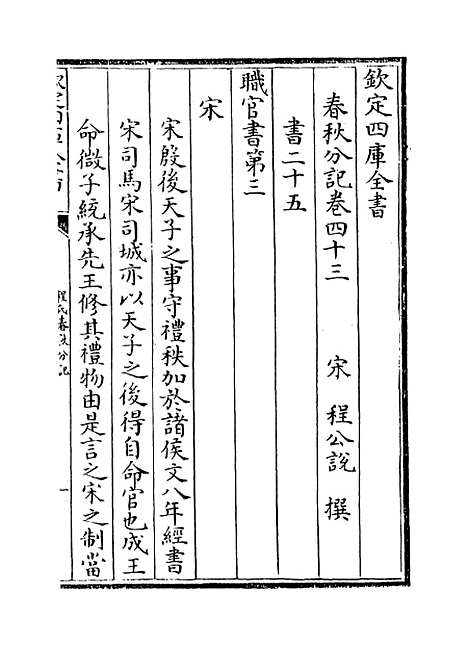 欽定四庫全書
春秋分記卷四十三　宋　程公說　撰
書二十五
職官書第三
宋
宋殷後天子之事守禮秩加於諸侯文八年經書
宋司馬宋司城亦以天子之後得自命官也成王
命微子統承先王修其禮物由是言之宋之制當
程氏春秋分記
一